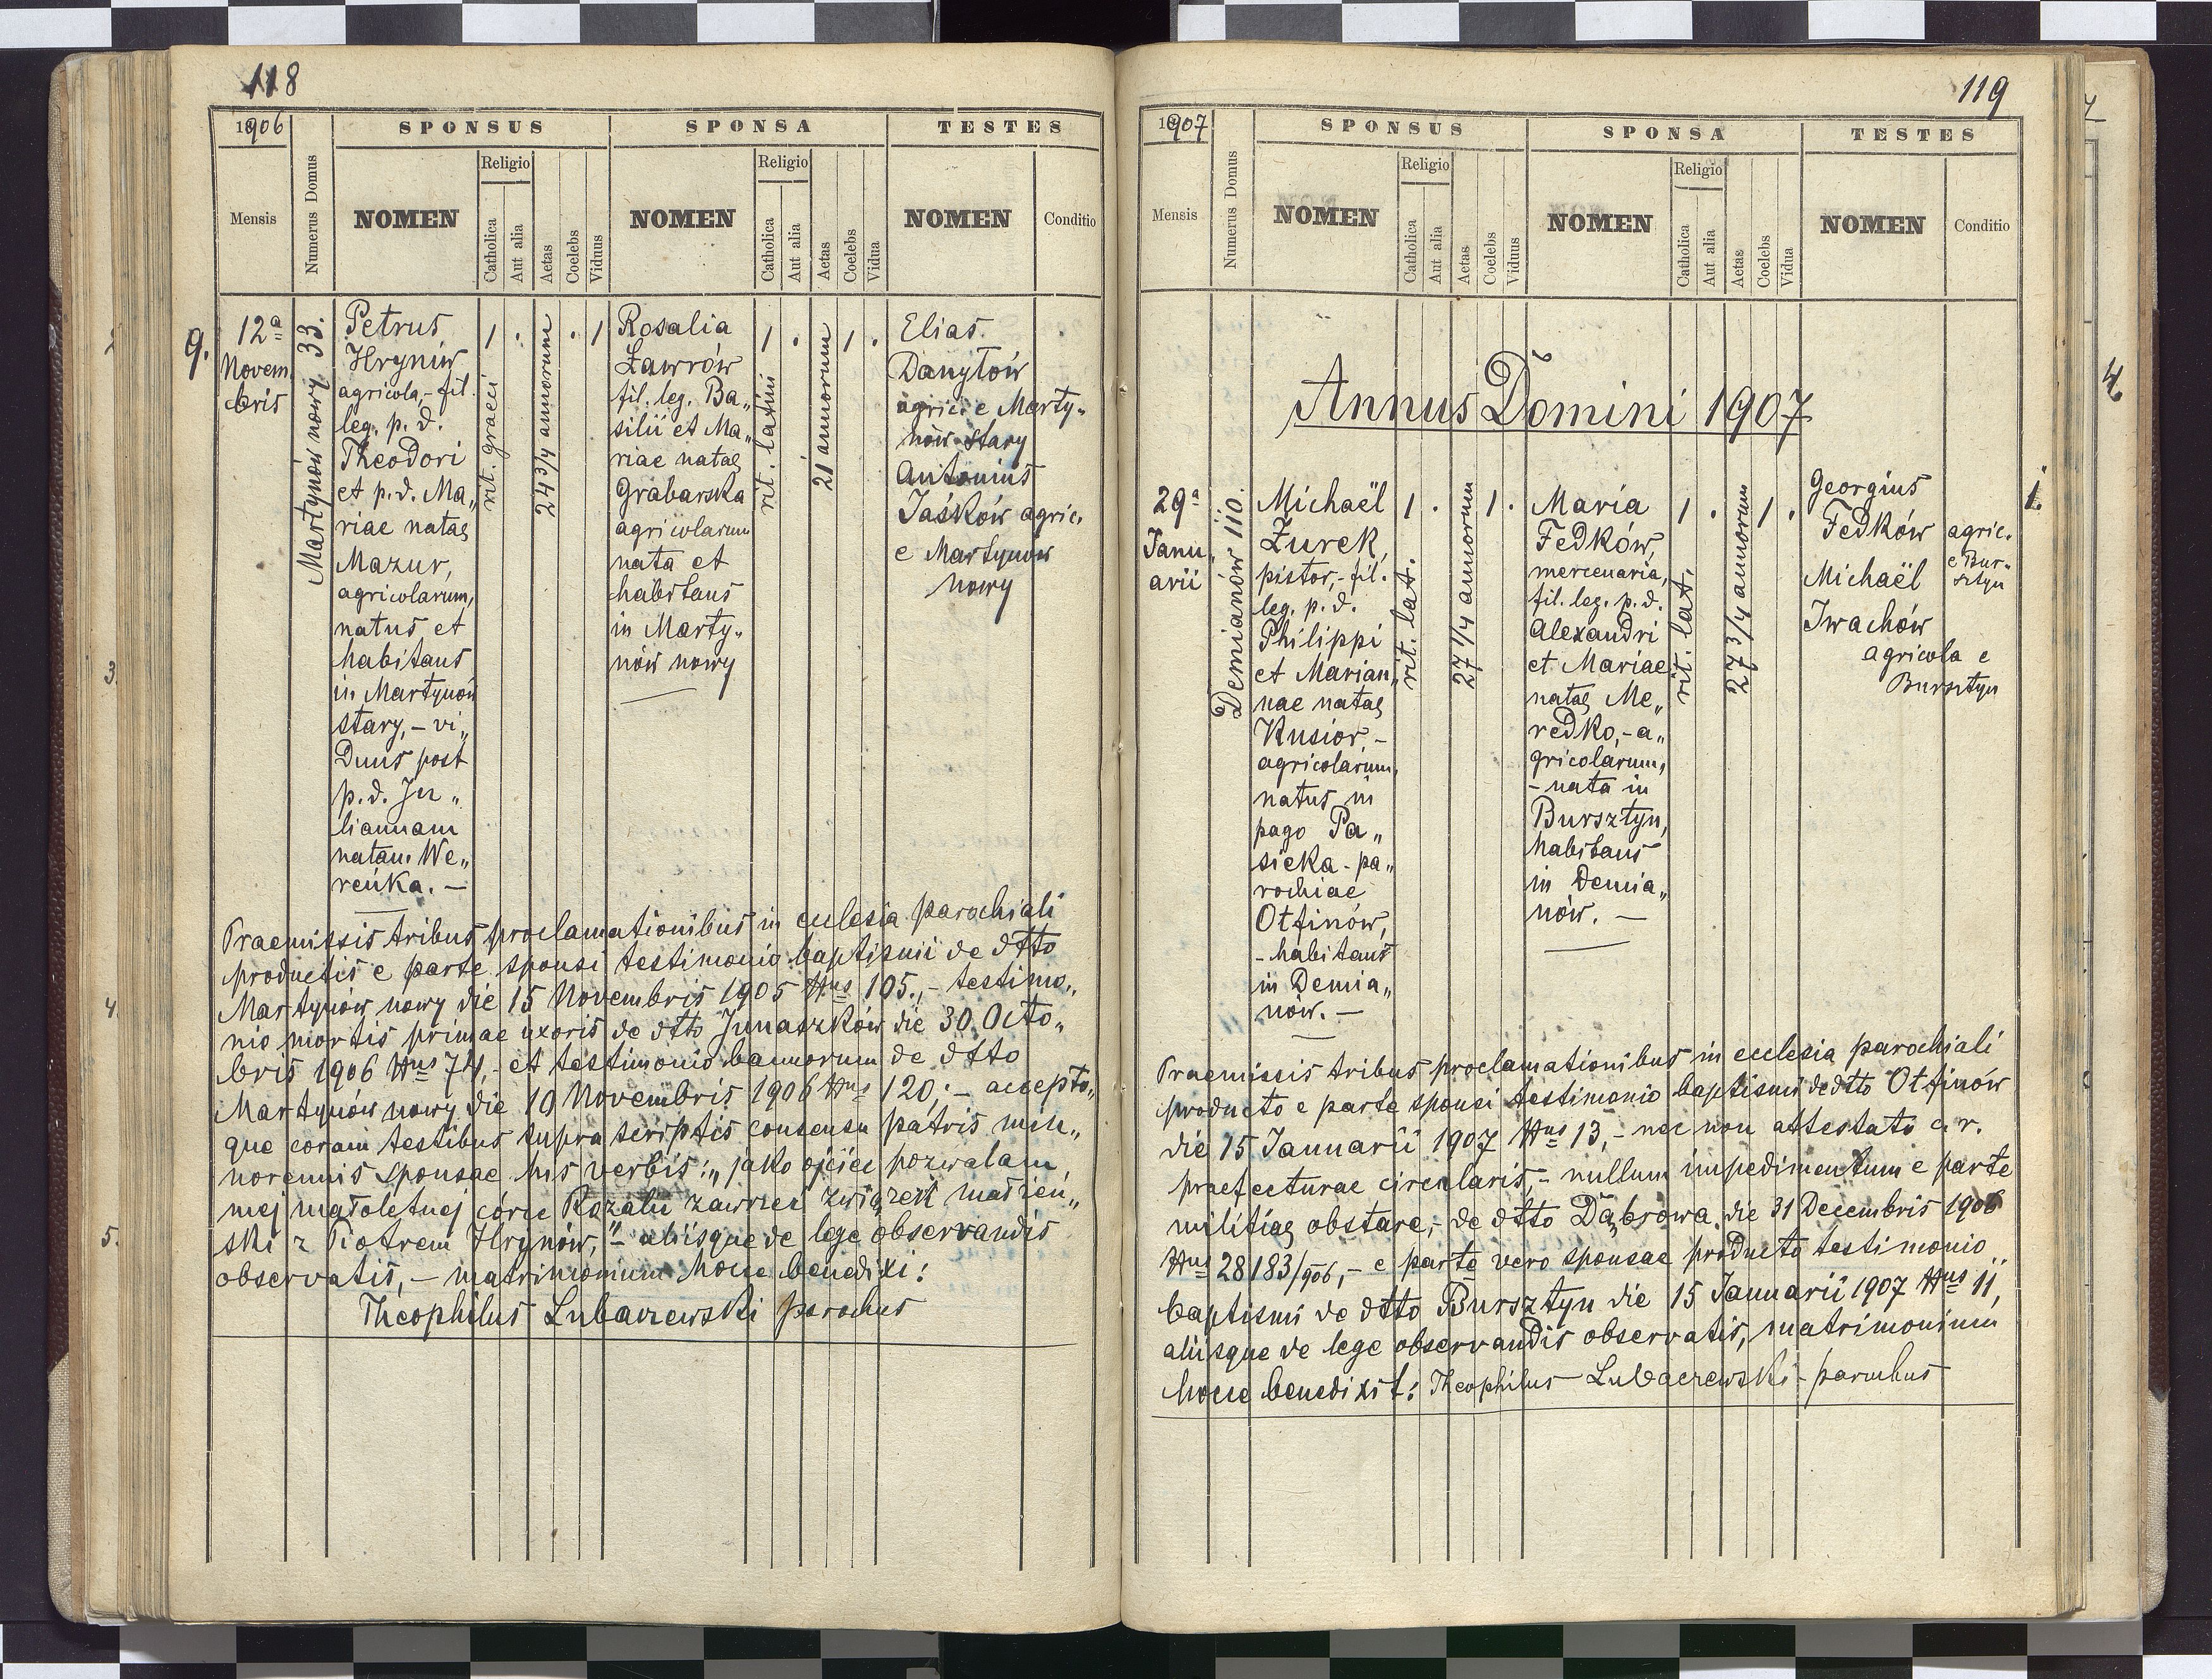 118
1906
SPONSUS
SPONSA
TESTES
Mensis
Numerus Domus
NOMEN
Religio
Catholica
Aut alia
Aetas
Coelebs
Viduus
NOMEN
Religio
Catholica
Aut alia
Aetas
Coelebs
Vidua
NOMEN
Conditio
9.
12ª
Novem
bris
Martynów nowy 33.
Petrus
Hryniw
agricola, - fil.
leg. p. d.
Theodori
et p. d. Ma„
riae natae
Mazur,
agricolarum,
natus et
habitans
in Martynów
stary, - vi„
duus post
p. d. Ju„
liannam
natam We„
reńka. —
1 .
rit. graeci
24 3/4 annorum
. 1
Rosalia
Ławrów
fil. leg. Ba„
silii et Ma„
riae natae
Grabarska
agricolarum
nata et
habitans
in Marty„
nów nowy
1 .
rit. latini
21 annorum
1 .
Elias
Danyłów
agric. e Marty„
nów stary
Antonius
Jaśków agric.
e Martynów
nowy
Praemissis tribus proclamationibus in ecclesia parochiali
productis e parte sponsi testimonio baptismi de dtto
Martynów nowy die 15 Novembris 1905 Nus 105., - testimo„
nio mortis primae uxoris de dtto Junaszków die 30. Octo„
bris 1906 Nus 74, - et testimonio bannorum de dtto
Martynów nowy die 10 Novembris 1906 Nus 120; - accepto„
que coram testibus supra scriptis consensu patris mi„
norennis sponsae his verbis: „jako ojciec pozwalam,
mej małoletniej córce Rozalii zawrzeć związek małżeń„
ski z Piotrem Hrynów," - aliisque de lege observandis
observatis, - matrimonium hocce benedixi:
Theophilus Lubaczewski parochus
119
1907
SPONSUS
SPONSA
TESTES
Mensis
Numerus Domus
NOMEN
Religio
Catholica
Aut alia
Aetas
Coelebs
Viduus
NOMEN
Religio
Catholica
Aut alia
Aetas
Coelebs
Vidua
NOMEN
Conditio
Annus Domini 1907
29ª
Janu„
arii
Demianów 110.
Michaël
Żurek,
pistor, - fil.
leg. p. d.
Philippi
et Marian„
nae natae
Kusior, -
agricolarum,
natus in
pago Pa„
sieka - pa„
rochiae
Otfinów,
- habitans
in Demia„
nów. —
1 .
rit. lat.
27 1/4 annorum
1 .
Maria
Fedków,
mercenaria,
fil. leg. p. d.
Alexandri
et Mariae
natae Me„
redko, - a„
gricolarum,
- nata in
Bursztyn,
habitans
in Demia„
nów. —
1 .
rit. lat.
27 3/4 annorum
1 .
Georgius
Fedków agric.
e Bur„
sztyn
Michaël
Iwachów
agricola e
Bursztyn
1.
Praemissis tribus proclamationibus in ecclesia parochiali
producto e parte sponsi testimonio baptismi de dtto Otfinów
die 15 Januarii 1907 Nus 13, - nec non attestato c. r.
praefecturae circularis, - nullum impedimentum e parte
militiae obstare, - de dtto Dąbrowa die 31 Decembris 1906
Nus 28183/906, - e parte vero sponsae producto testimonio
baptismi de dtto Bursztyn die 15 Januarii 1907 Nus 11,
aliisque de lege observandis observatis, matrimonium
hocce benedixit: Theophilus Lubaczewski - parochus
3.
4.
5.
4.